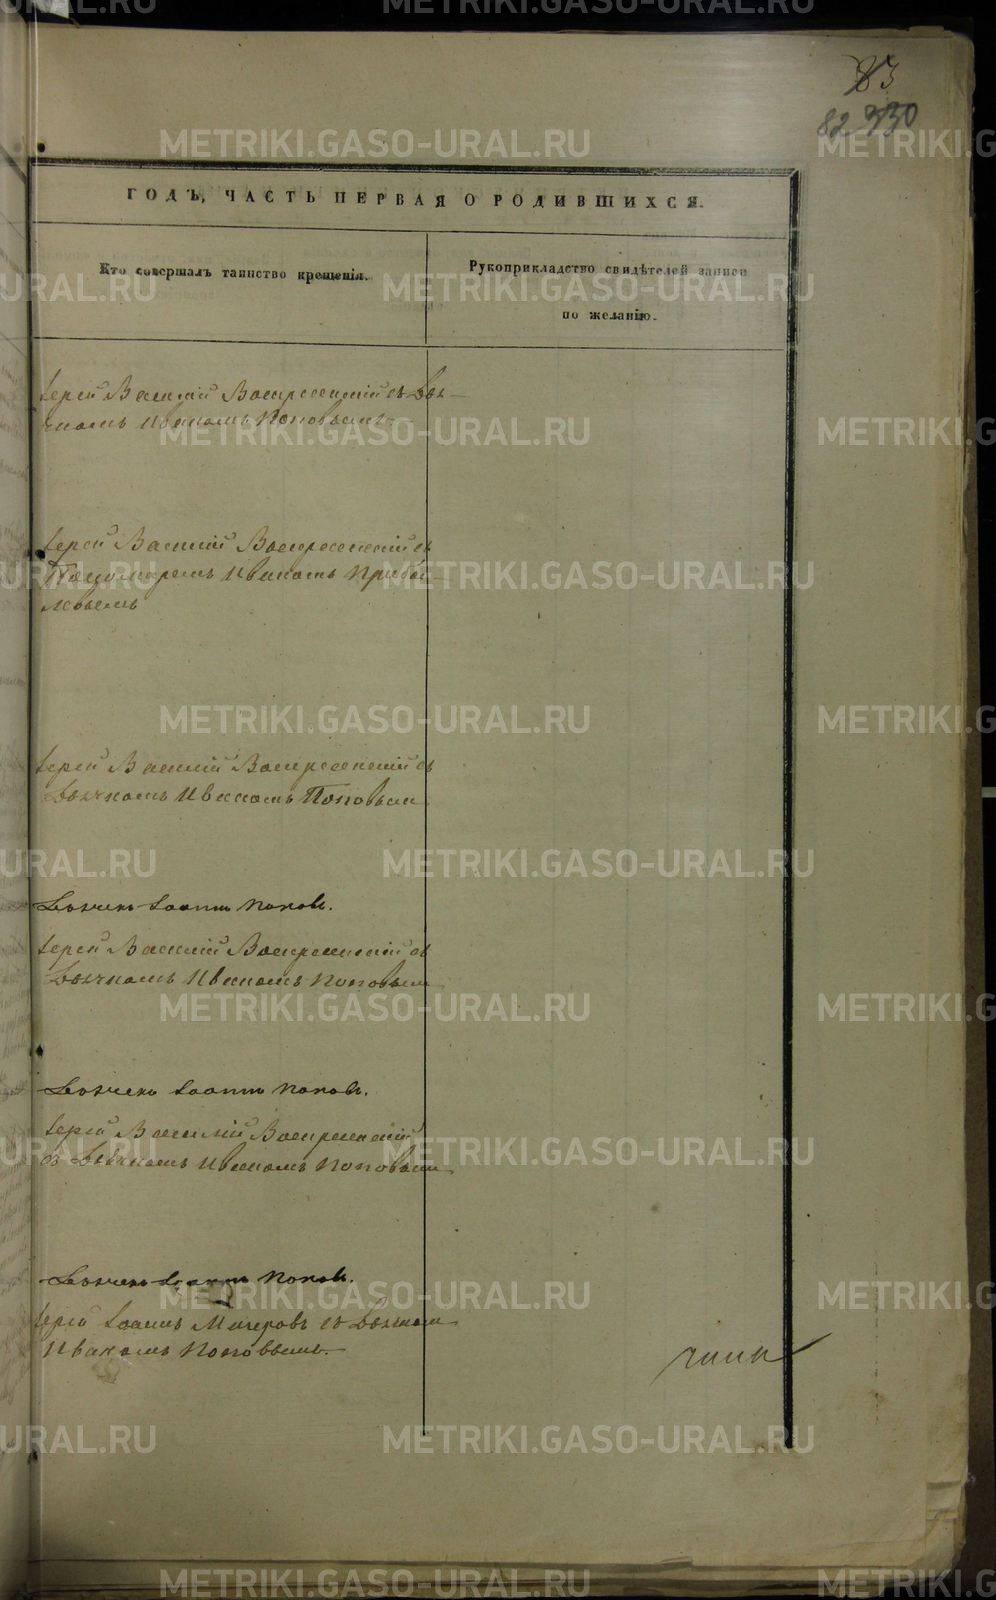 83
82 330
ГОДЪ, ЧАСТЬ ПЕРВАЯ О РОДИВШИХСЯ.
Кто совершалъ таинство крещенія.
Рукоприкладство свидѣтелей записи
по желанію.
Іерей Василій Воскресенскій съ Дья-
чкомъ Иваномъ Поповымъ
Іерей Василій Воскресенскій съ
Пономаремъ Иваномъ Прибы-
ловымъ
Іерей Василій Воскресенскій съ
Дьячкомъ Иваномъ Поповым
Дьячекъ Іоаннъ Поповъ.
Іерей Василій Воскресенскій съ
Дьячкомъ Иваномъ Поповым
Дьячекъ Іоаннъ Поповъ.
Іерей Василій Воскресенскій
съ Дьячкомъ Иваномъ Поповым
Дьячекъ Іоаннъ Поповъ.
Іерей Іоаннъ съ Дьячком
Иваномъ Поповымъ.
METRIKI.GASO-URAL.RU